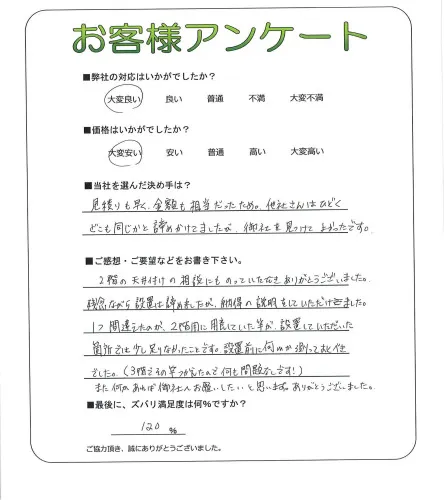 お客様アンケート
■弊社の対応はいかがでしたか?
大変良い 良い 普通 不満 大変不満
■価格はいかがでしたか?
大変安い 安い 普通 高い 大変高い
■当社を選んだ決め手は?
見積りも早く、金額も相当だったため。他社さんはひどく
どこも同じかと諦めかけてましたが、御社を見つけてよかったです。
■ご感想・ご要望などをお書き下さい。
2階の天井付けの相談にものっていただきありがとうございました。
残念ながら設置は諦めましたが、納得の説明をしていただけました。
1つ間違えたのが、2階用に用意していた竿が、設置していただいた
箇所では少し足りなかったことです。設置前に何mか測っておくべき
でした。(3階での竿が使えたので何も問題なしです!)
また何かあれば御社へお願いしたいと思います。ありがとうございました。
■最後に、ズバリ満足度は何%ですか?
120 %
ご協力頂き、誠にありがとうございました。